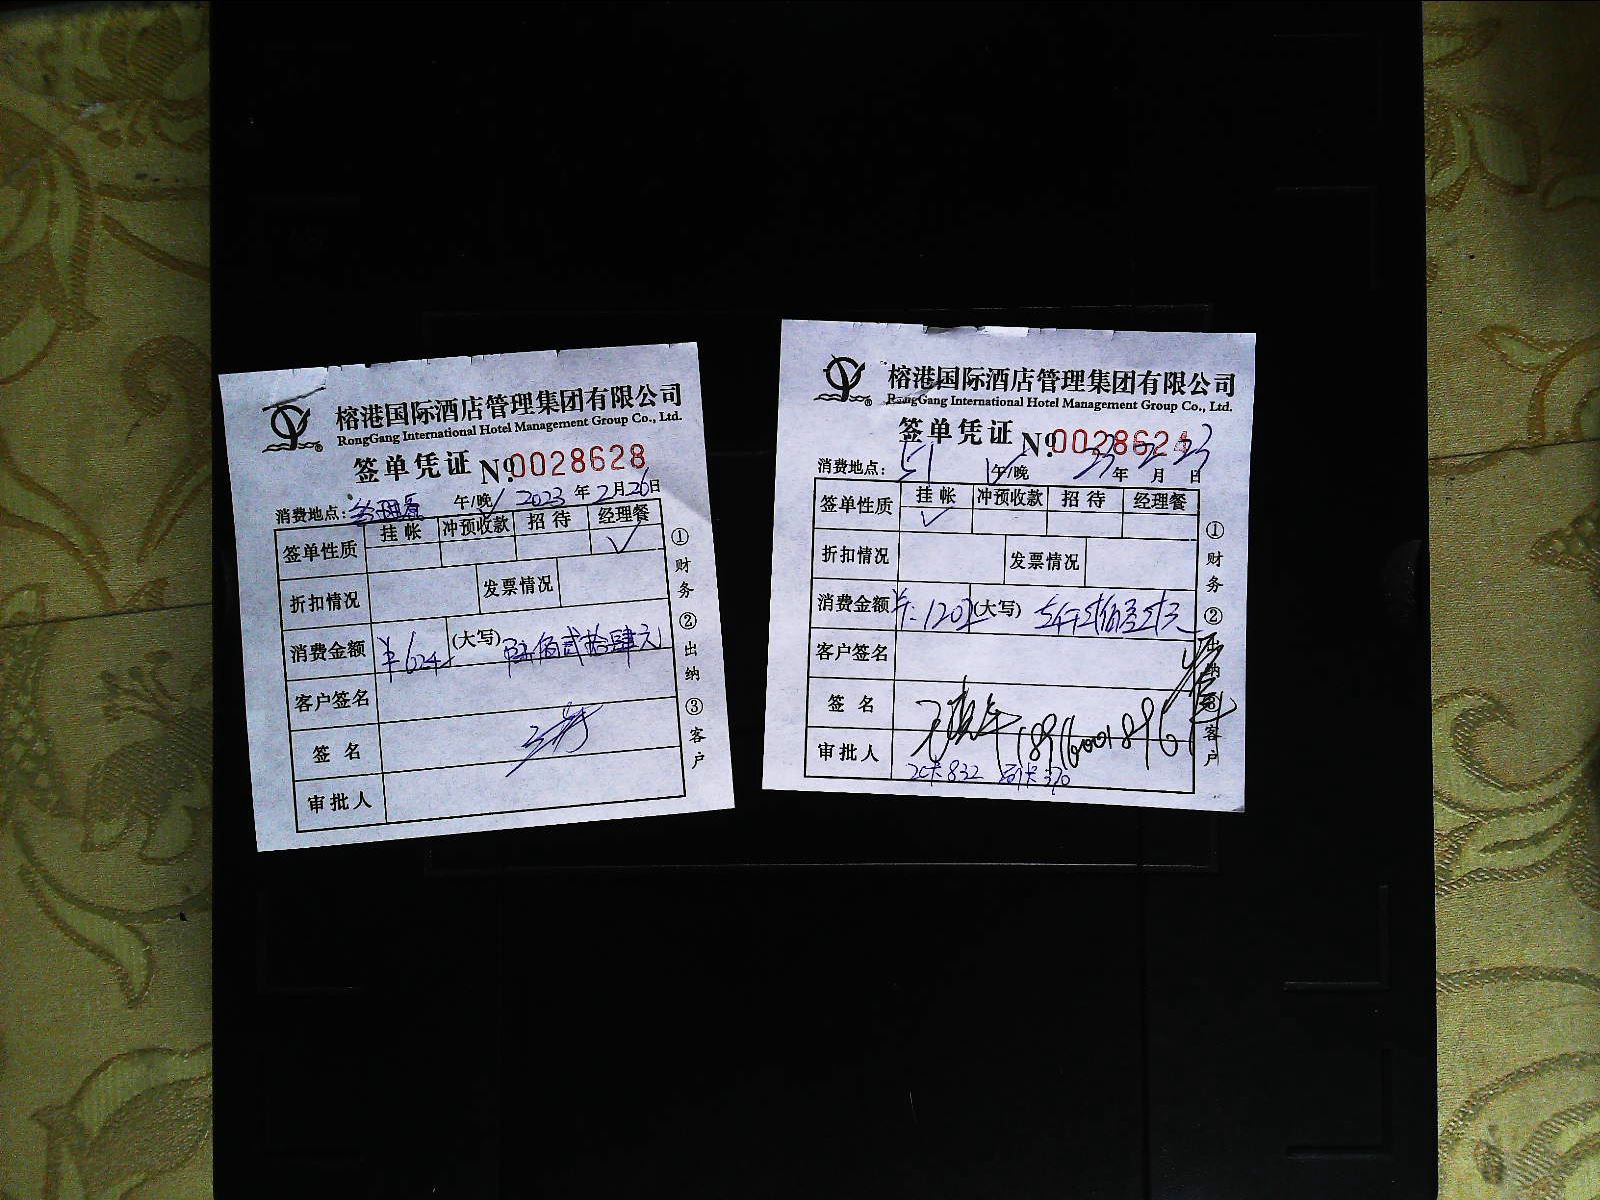 榕港国际酒店管理集团有限公司
RongGang International Hotel Management Group Co., Ltd.
签单凭证 No. 0028628
消费地点: 午/晚 2023 年 2 月 26 日
签单性质 挂帐 冲预收款 招待 经理餐
✓
折扣情况 发票情况
消费金额 ¥624 (大写) 陆佰贰拾肆元
客户签名
签名
审批人
① 财务 ② 出纳 ③ 客户
榕港国际酒店管理集团有限公司
RongGang International Hotel Management Group Co., Ltd.
签单凭证 No. 0028624
消费地点: 51 午/晚 23 年 2 月 23 日
签单性质 挂帐 冲预收款 招待 经理餐
✓
折扣情况 发票情况
消费金额 ¥:1202 (大写)
客户签名
签名
审批人 832 370
① 财务 ② 出纳 ③ 客户